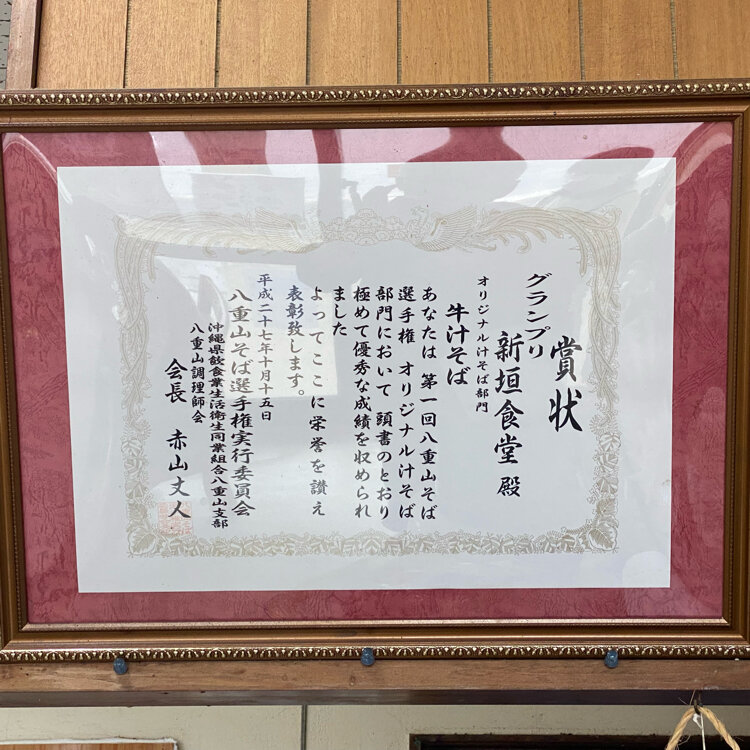 賞状
グランプリ
新垣食堂 殿
オリジナル汁そば部門
牛汁そば
あなたは 第一回八重山そば
選手権 オリジナル汁そば
部門において 頭書のとおり
極めて優秀な成績を収められ
ました
よってここに栄誉を讃え
表彰致します。
平成二十七年十月十五日
八重山そば選手権実行委員会
沖縄県飲食業生活衛生同業組合八重山支部
八重山調理師会
会長 赤山丈人